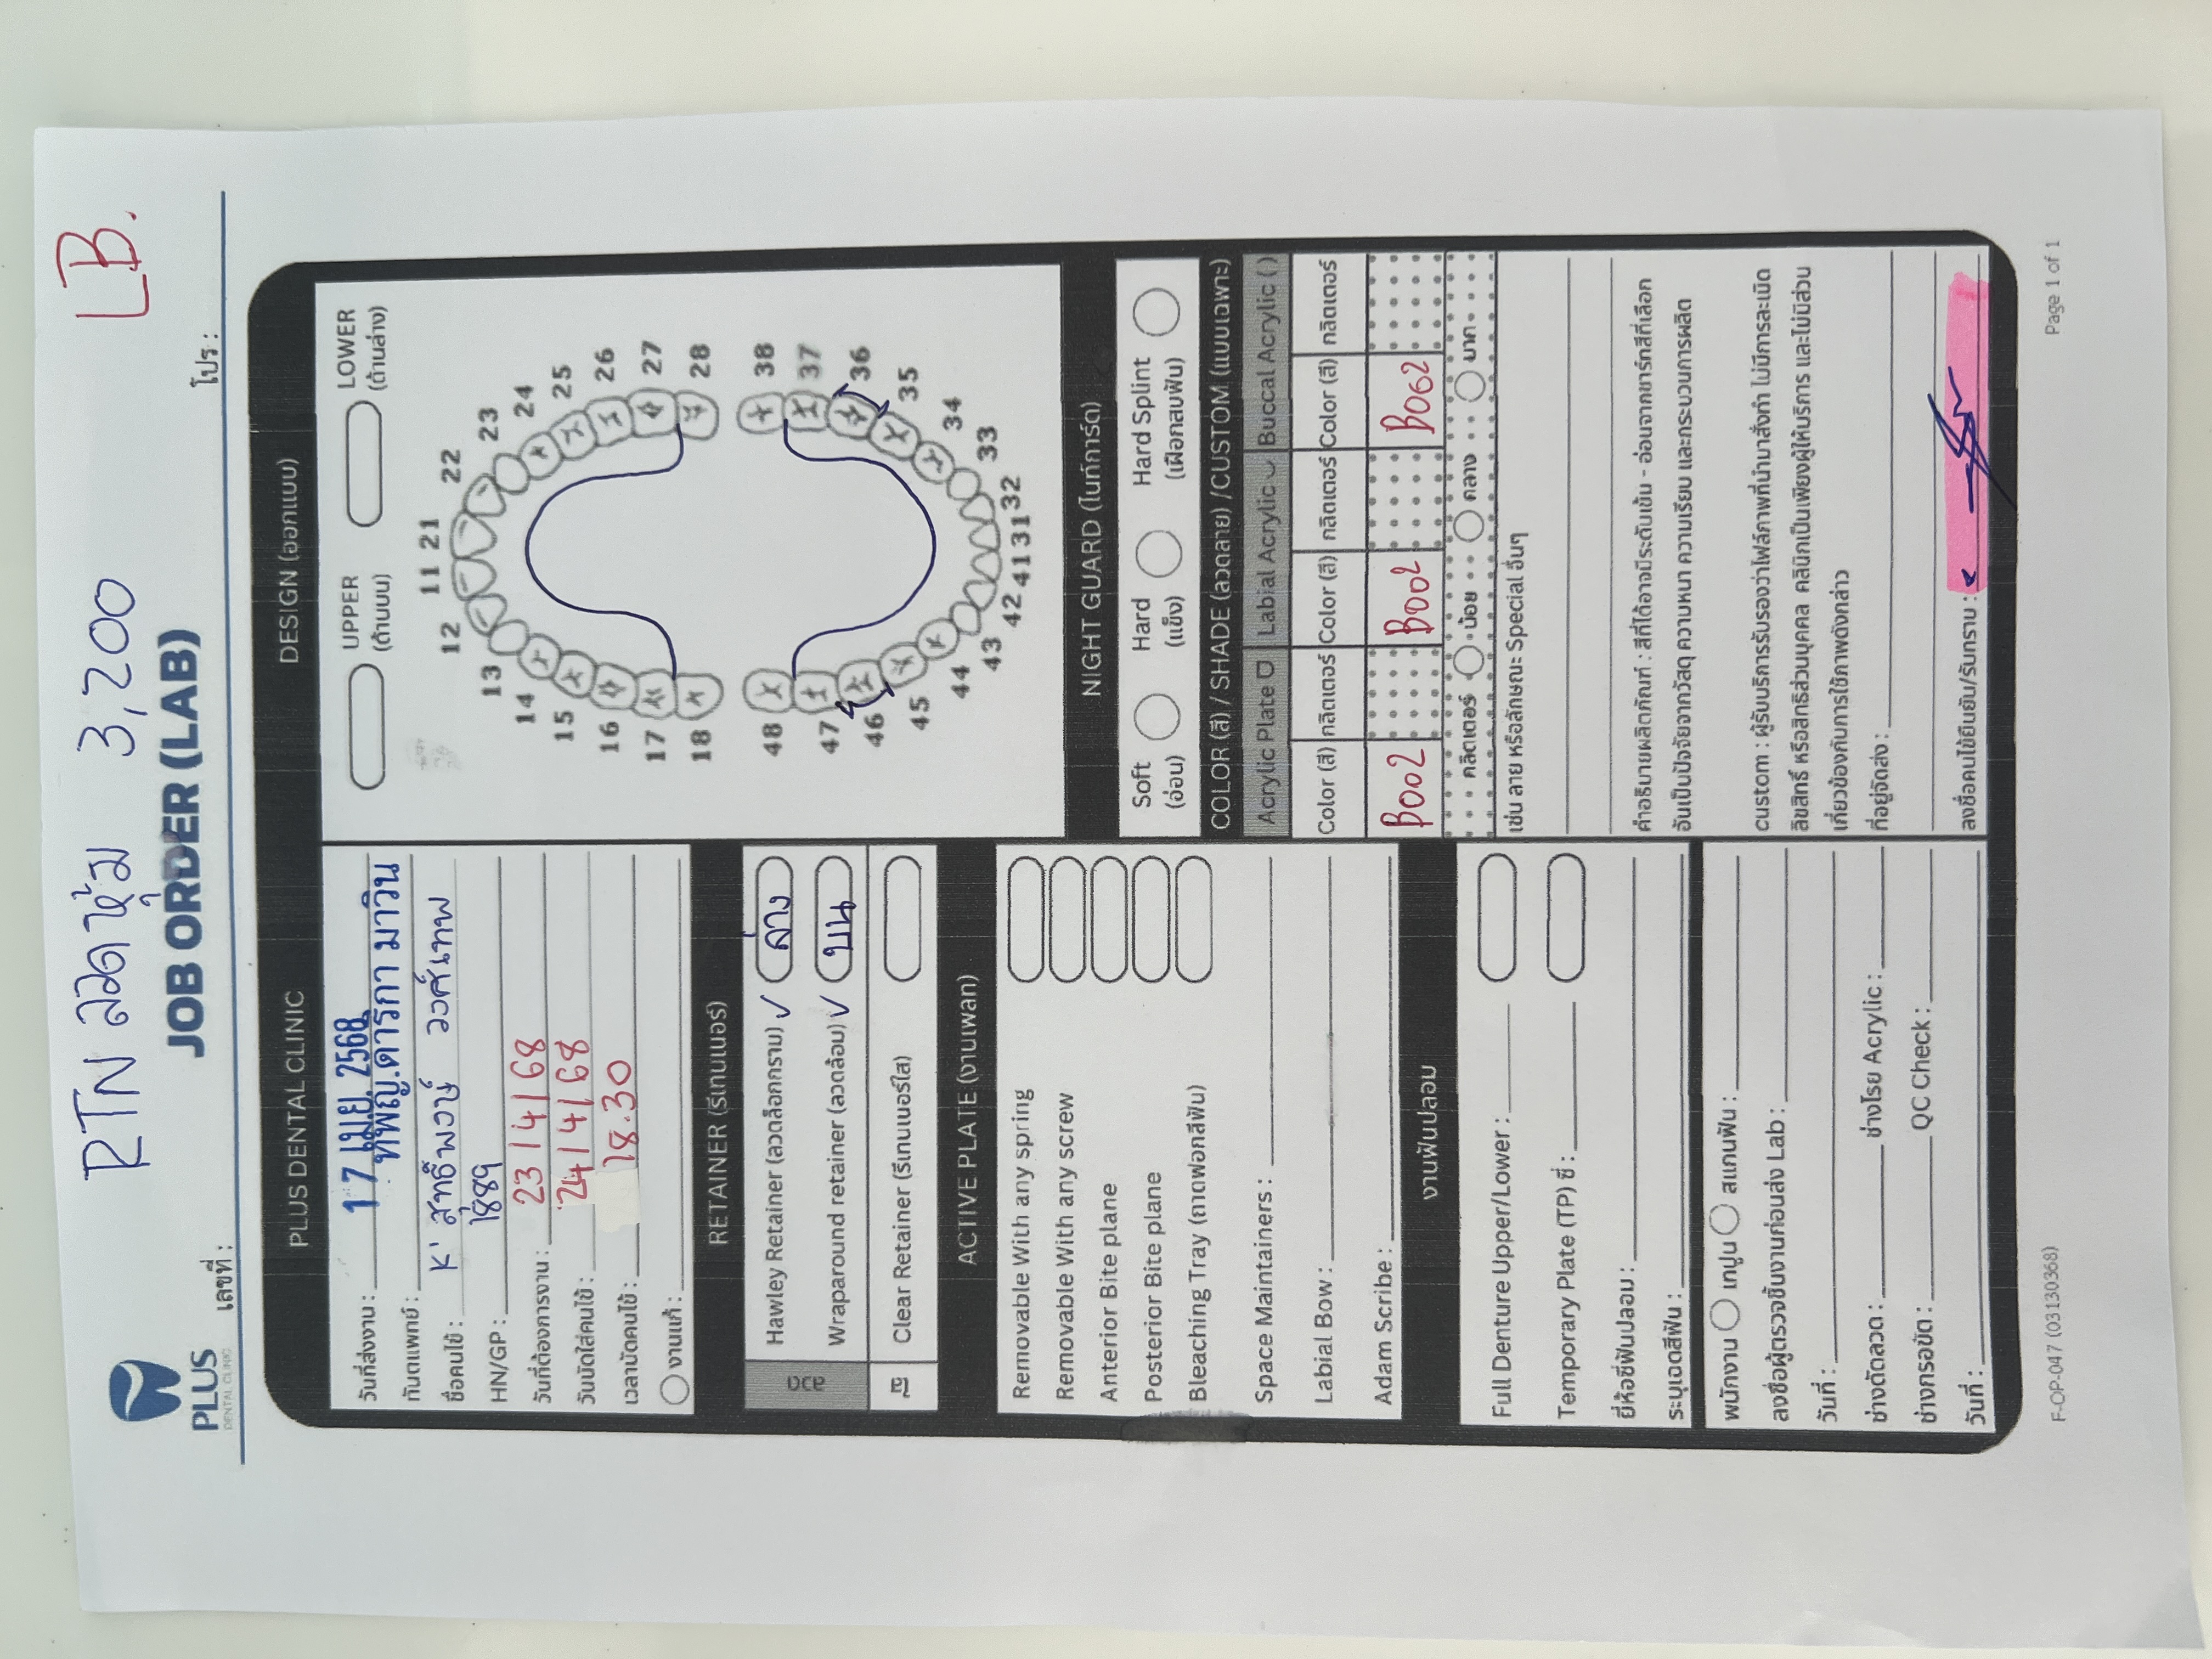 RTN ลวดหุ้ม 3,200 LB.
PLUS
DENTAL CLINIC
เลขที่ :
JOB ORDER (LAB)
โปร :
PLUS DENTAL CLINIC
วันที่ส่งงาน : 17 เม.ย. 2568
ทันตแพทย์ : ทพญ.ดาริกา มาวิน
ชื่อคนไข้ : K' สุทธิ์พงษ์ วงศ์เทพ
HN/GP : 1889
วันที่ต้องการงาน : 23/4/68
วันนัดใส่คนไข้ : 24/4/68
เวลานัดคนไข้ : 18.30
งานแก้ :
RETAINER (รีเทนเนอร์)
ลวด
Hawley Retainer (ลวดล็อกกราม) ✓ ล่าง
Wraparound retainer (ลวดล้อม) ✓ บน
ใส
Clear Retainer (รีเทนเนอร์ใส)
ACTIVE PLATE (งานเพลท)
Removable With any spring
Removable With any screw
Anterior Bite plane
Posterior Bite plane
Bleaching Tray (ถาดฟอกสีฟัน)
Space Maintainers :
Labial Bow :
Adam Scribe :
งานฟันปลอม
Full Denture Upper/Lower :
Temporary Plate (TP) ซี่ :
ยี่ห้อซี่ฟันปลอม :
ระบุเฉดสีฟัน :
พนักงาน เทปูน สแกนฟัน :
ลงชื่อผู้ตรวจชิ้นงานก่อนส่ง Lab :
วันที่ :
ช่างดัดลวด : ช่างโรย Acrylic :
ช่างกรอขัด : QC Check :
วันที่ :
DESIGN (ออกแบบ)
UPPER
(ด้านบน)
LOWER
(ด้านล่าง)
11 21
12 22
13 23
14 24
15 25
16 26
17 27
18 28
48 38
47 37
46 36
45 35
44 34
43 33
42 41 31 32
NIGHT GUARD (ไนท์การ์ด)
Soft
(อ่อน)
Hard
(แข็ง)
Hard Splint
(เฝือกสบฟัน)
COLOR (สี) / SHADE (ลวดลาย) /CUSTOM (แบบเฉพาะ)
Acrylic Plate Labial Acrylic Buccal Acrylic ( )
Color (สี) กลิตเตอร์ Color (สี) กลิตเตอร์ Color (สี) กลิตเตอร์
B002 B002 B002
กลิตเตอร์ น้อย กลาง มาก
เช่น ลาย หรือลักษณะ Special อื่นๆ
คำอธิบายผลิตภัณฑ์ : สีที่ได้อาจมีระดับเข้ม - อ่อนจากชาร์ทสีที่เลือก
อันเป็นปัจจัยจากวัสดุ ความหนา ความเรียบ และกระบวนการผลิต
custom : ผู้รับบริการรับรองว่าไฟล์ภาพที่นำมาสั่งทำ ไม่มีการละเมิด
ลิขสิทธิ์ หรือสิทธิส่วนบุคคล คลินิกเป็นเพียงผู้ให้บริการ และไม่มีส่วน
เกี่ยวข้องกับการใช้ภาพดังกล่าว
ที่อยู่จัดส่ง :
ลงชื่อคนไข้ยืนยัน/รับทราบ :
F-OP-047 (03130368)
Page 1 of 1